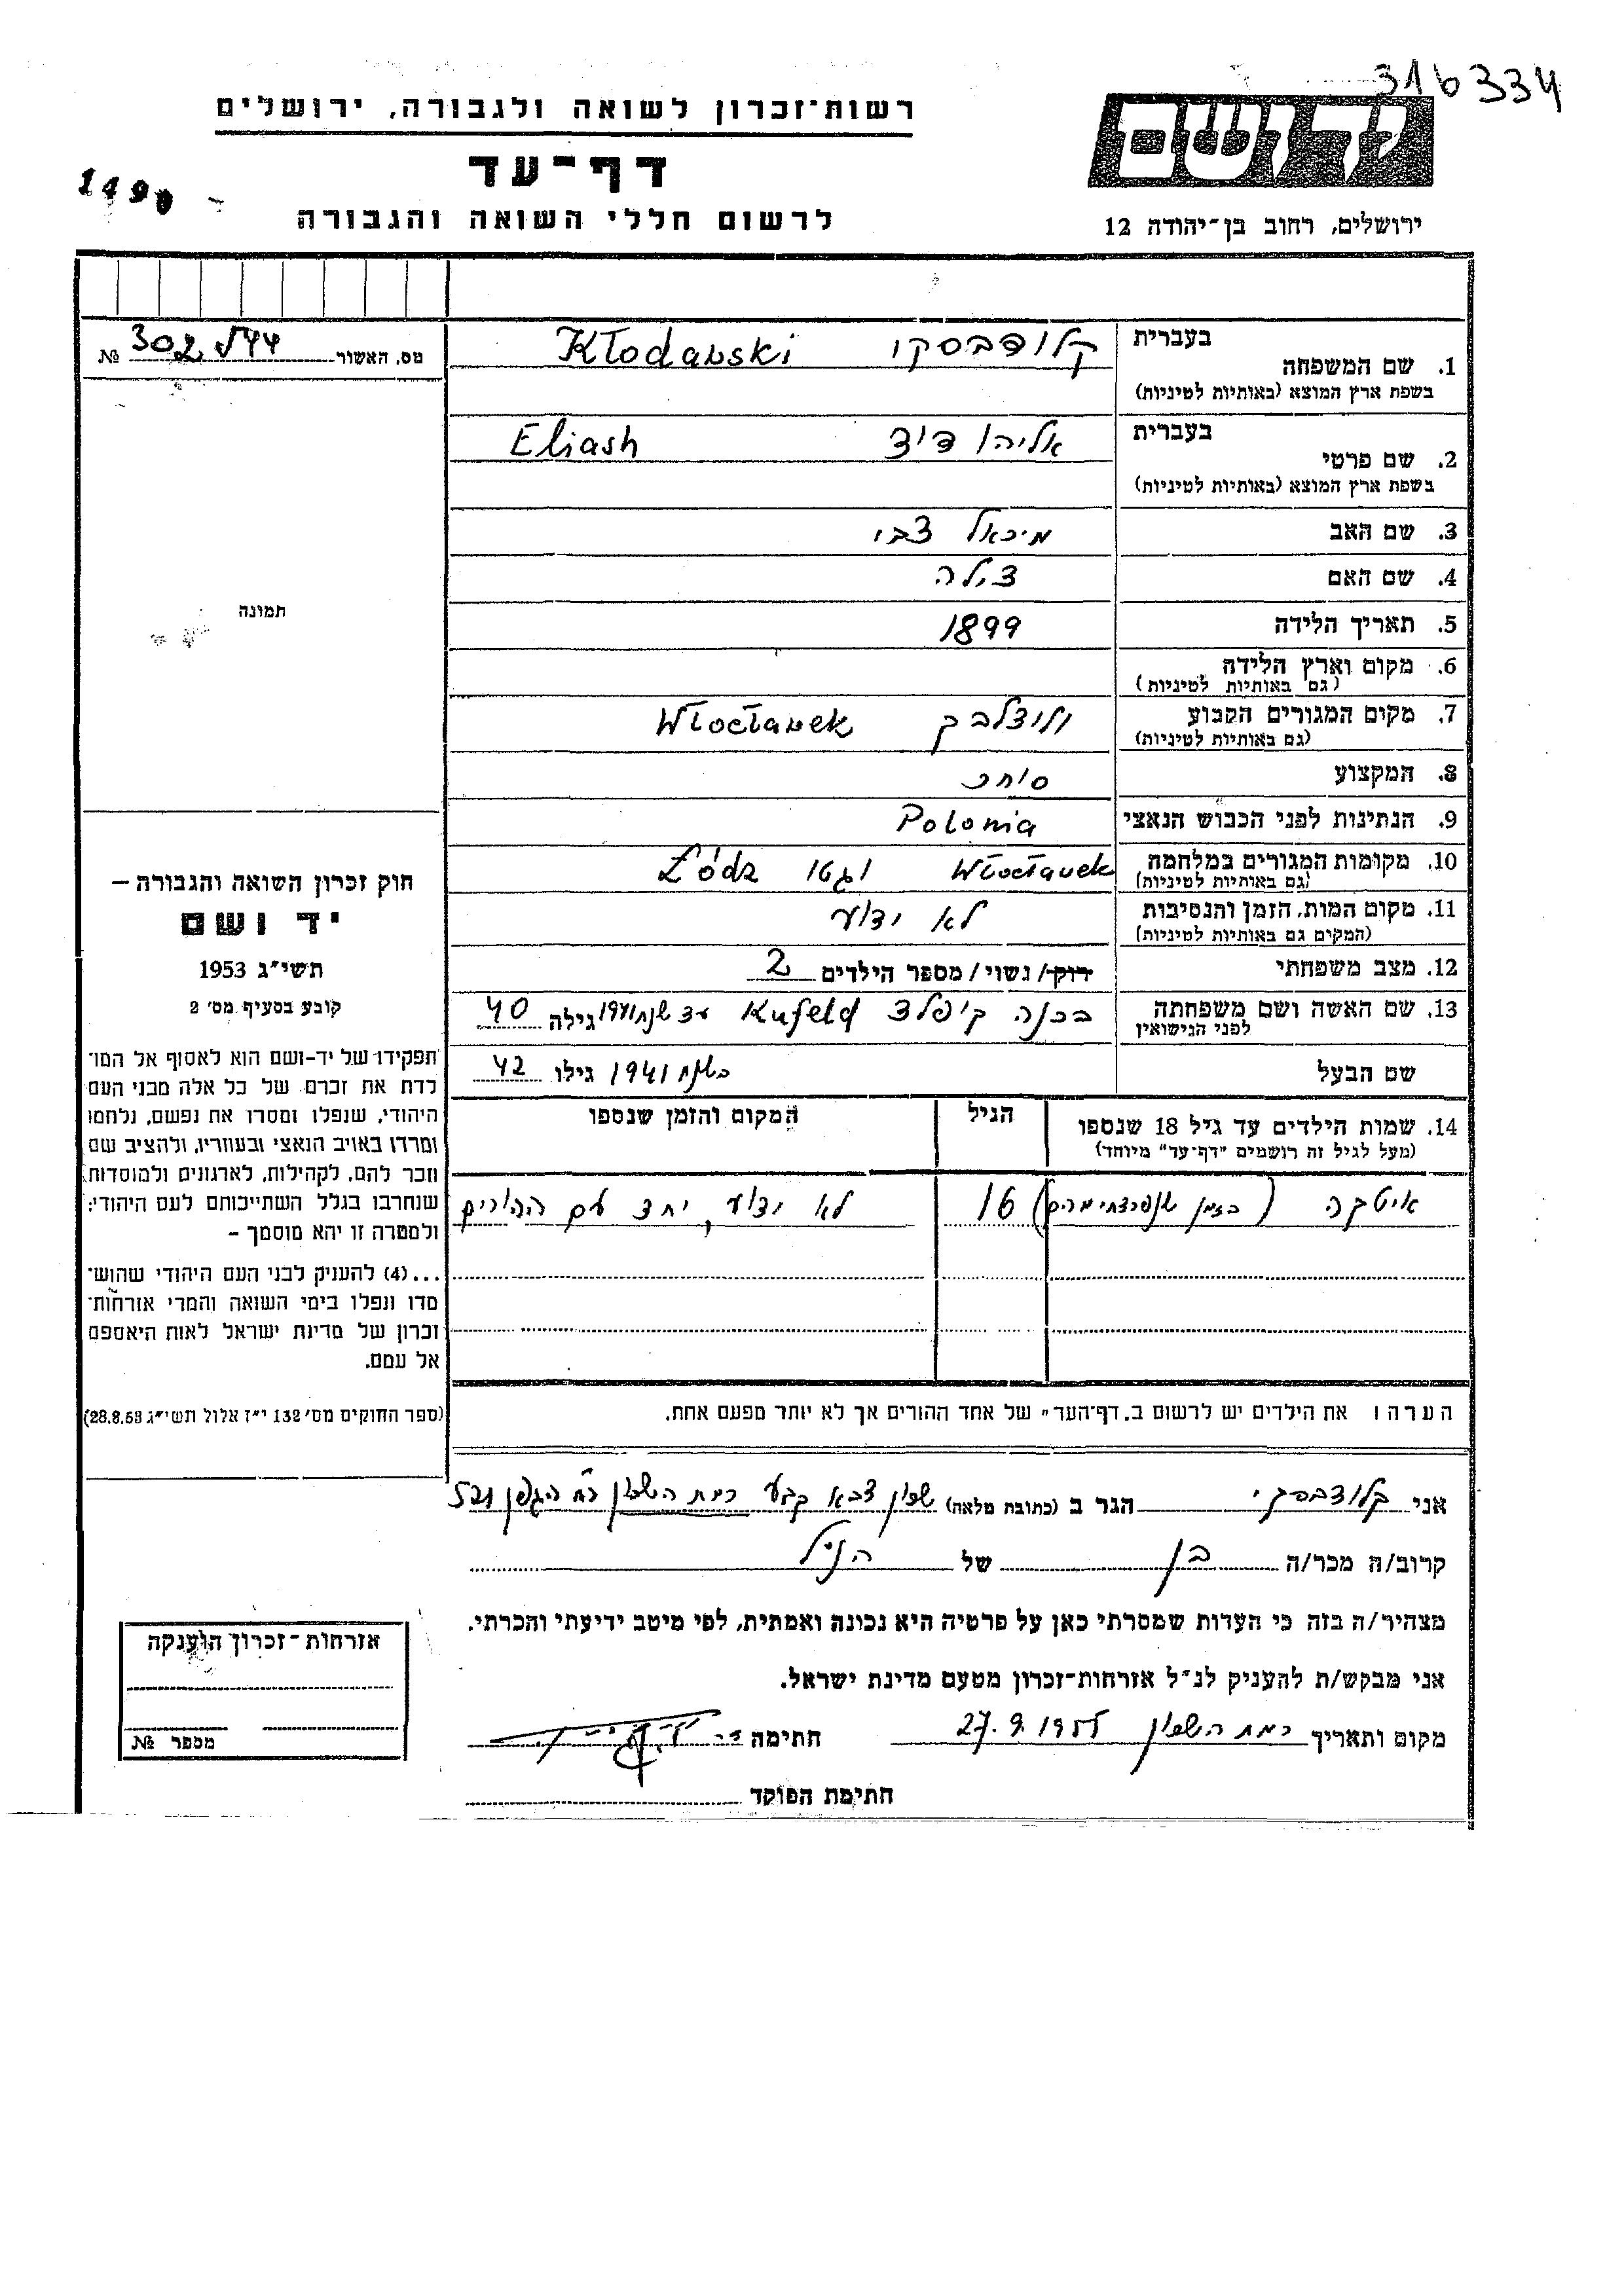 316334
רשות־זכרון לשואה ולגבורה, ירושלים
ידושם
דף־עד
1490
לרשום חללי השואה והגבורה
ירושלים, רחוב בן־יהודה 12
בעברית
קלודבסקי Kłodawski
1. שם המשפחה
בשפת ארץ המוצא (באותיות לטיניות)
מס. האשור № 302
בעברית
אליהו דוד Eliash
2. שם פרטי
בשפת ארץ המוצא (באותיות לטיניות)
3. שם האב מיכאל צבי
4. שם האם צילה
תמונה
5. תאריך הלידה 1899
6. מקום וארץ הלידה
(גם באותיות לטיניות)
7. מקום המגורים הקבוע ולוצלבק Włocławek
(גם באותיות לטיניות)
8. המקצוע סוחר
9. הנתינות לפני הכבוש הנאצי Polonia
10. מקומות המגורים במלחמה Włocławek וגטו Łódz
(גם באותיות לטיניות)
11. מקום המות, הזמן והנסיבות לא ידוע
(המקום גם באותיות לטיניות)
12. מצב משפחתי רוק/ נשוי/ מספר הילדים 2
13. שם האשה ושם משפחתה קופלד Kufeld עד שנת 1941 גילה 40
לפני הנישואין
שם הבעל בשנת 1941 גילו 42
14. שמות הילדים עד גיל 18 שנספו הגיל המקום והזמן שנספו
(מעל לגיל זה רושמים "דף־עד" מיוחד)
איטקה (בזמן 16 לא ידוע, יחד עם ההורים
הערה ו את הילדים יש לרשום ב„דף־העד" של אחד ההורים אך לא יותר מפעם אחת.
חוק זכרון השואה והגבורה –
יד ושם
תשי״ג 1953
קובע בסעיף מס׳ 2
תפקידו של יד-ושם הוא לאסוף אל המו־
לדת את זכרם של כל אלה מבני העם
היהודי, שנפלו ומסרו את נפשם, נלחמו
ומרדו באויב הנאצי ובעוזריו, ולהציב שם
וזכר להם, לקהילות, לארגונים ולמוסדות
שנחרבו בגלל השתייכותם לעם היהודי;
ולמטרה זו יהא מוסמך –
...(4) להעניק לבני העם היהודי שהוש־
מדו ונפלו בימי השואה והמרי אזרחות־
זכרון של מדינת ישראל לאות היאספם
אל עמם.
(ספר החוקים מס׳ 132 י״ז אלול תשי״ג 28.8.53)
אני קלודבסקי הגר ב (כתובת מלאה) שכון צבא קבע רמת השרון רח הגפן 521
קרוב/ה מכר/ה בן של הנ״ל
מצהיר/ה בזה כי העדות שמסרתי כאן על פרטיה היא נכונה ואמתית, לפי מיטב ידיעתי והכרתי.
אני מבקש/ת להעניק לנ״ל אזרחות־זכרון מטעם מדינת ישראל.
מקום ותאריך רמת השרון 27.9.1955 חתימה
חתימת הפוקד
אזרחות־זכרון הוענקה
מספר №